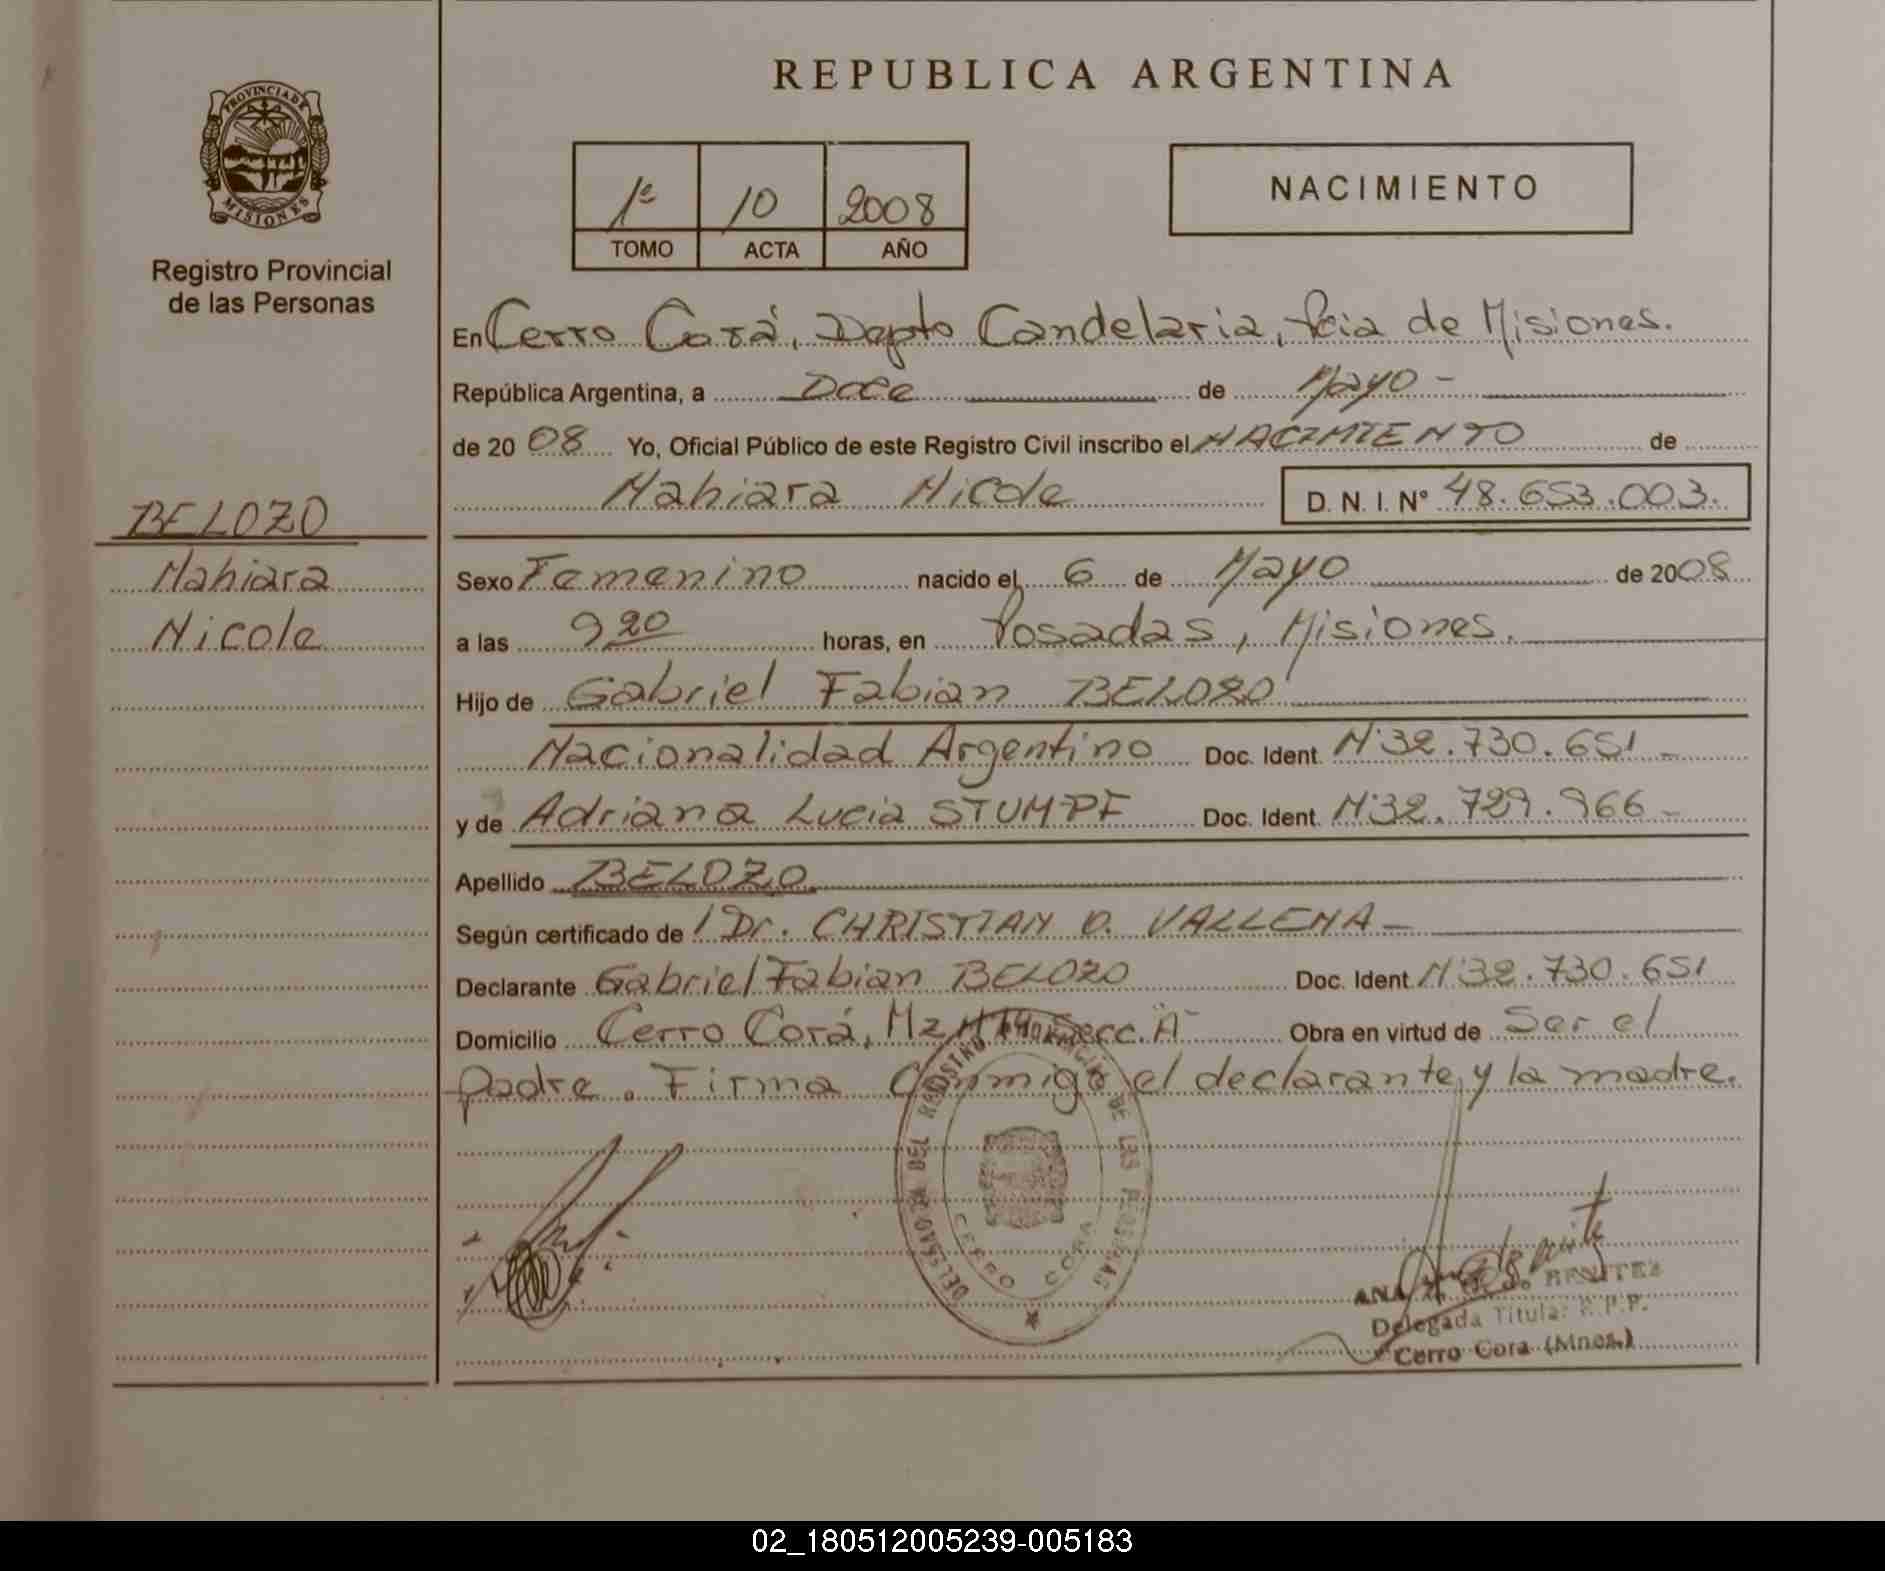 REPUBLICA ARGENTINA
PROVINCIA DE
MISIONES
Registro Provincial
de las Personas
1º 10 2008
TOMO ACTA AÑO
NACIMIENTO
En Cerro Corá, Depto Candelaria, Pcia de Misiones.
República Argentina, a Doce de Mayo -
de 2008 Yo, Oficial Público de este Registro Civil inscribo el NACIMIENTO de
Mahiara Nicole D. N. I. Nº 48.653.003.
BELOZO
Mahiara
Nicole
Sexo Femenino nacido el 6 de Mayo de 2008
a las 9 20 horas, en Posadas, Misiones.
Hijo de Gabriel Fabian BELOZO
Nacionalidad Argentino Doc. Ident. Nº32.730.651 -
y de Adriana Lucia STUMPF Doc. Ident. Nº32.729.966 -
Apellido BELOZO
Según certificado de Dr. CHRISTIAN O. VALLENA -
Declarante Gabriel Fabian BELOZO Doc. Ident. Nº32.730.651
Domicilio Cerro Corá, Mz Secc. "A" Obra en virtud de Ser el
padre. Firma Conmigo el declarante y la madre.
DEL REGISTRO PROVINCIAL DE LAS PERSONAS
CERRO CORA
ANA BENITEZ
Delegada Titular R.P.P.
Cerro Cora (Mnes.)
02_180512005239-005183